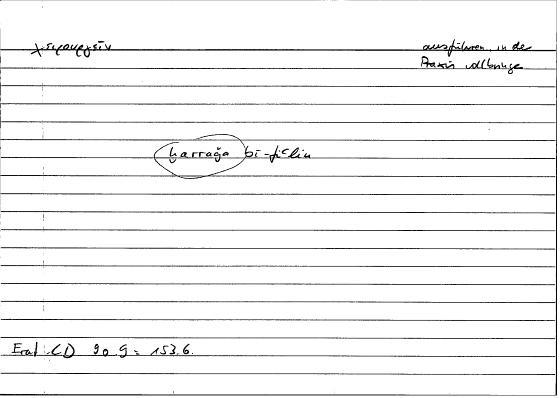 χειρουργεῖν
ausführen, in der
Praxis vollbringen
ḫarraǧa bi-fiʿlin
Erat. CD 90.9 = 153.6.